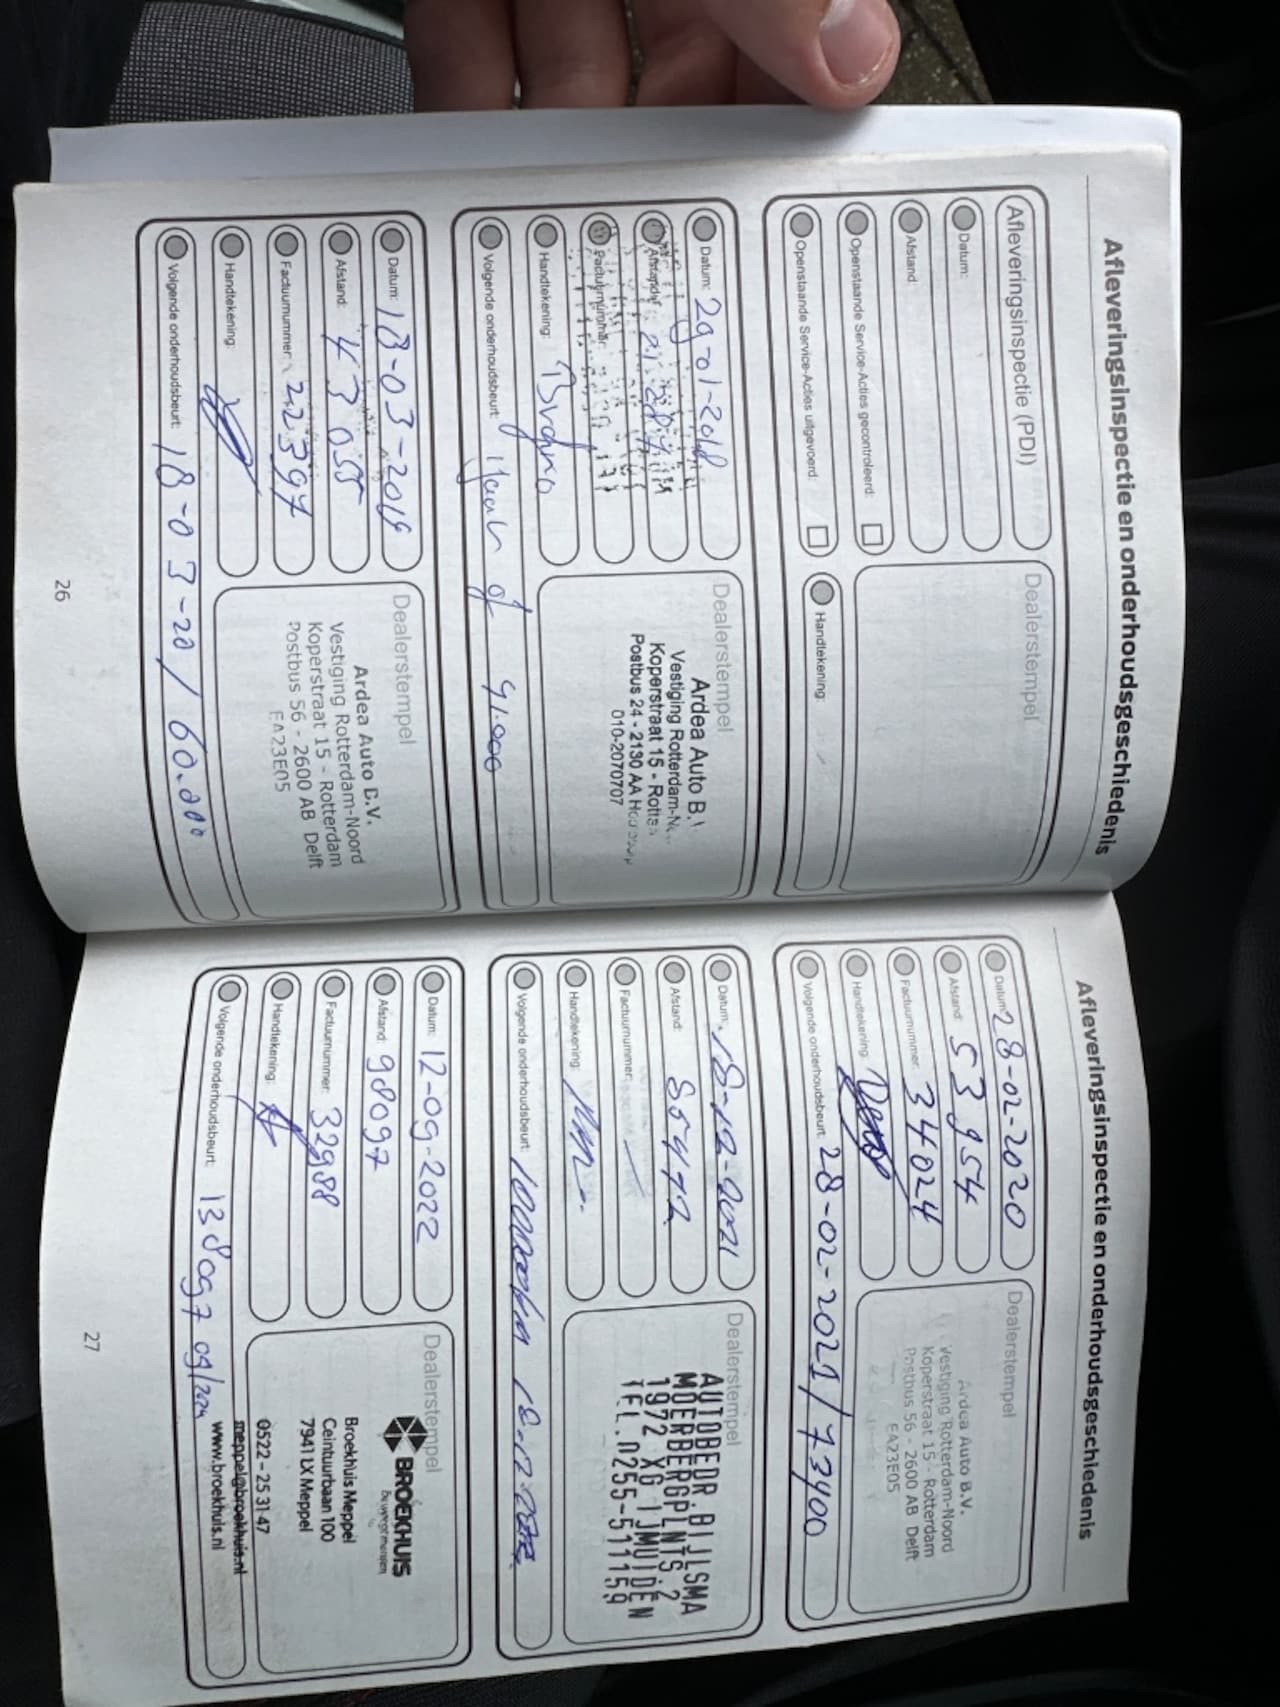 Afleveringsinspectie en onderhoudsgeschiedenis
Afleveringsinspectie (PDI)
Datum:
Afstand:
Openstaande Service-Acties gecontroleerd:
Openstaande Service-Acties uitgevoerd:
Dealerstempel
Handtekening:
Datum: 29-01-2018
Afstand:
Factuurnummer:
Handtekening:
Volgende onderhoudsbeurt: 1 Jaar of
Dealerstempel
Ardea Auto B.V.
Vestiging Rotterdam-N
Koperstraat 15 - Rotte
Postbus 24 - 2130 AA Ho
010-2070707
Datum: 18-03-2019
Afstand: 43055
Factuurnummer: 22397
Handtekening:
Volgende onderhoudsbeurt: 18-03-20 / 60.000
Dealerstempel
Ardea Auto B.V.
Vestiging Rotterdam-Noord
Koperstraat 15 - Rotterdam
Postbus 56 - 2600 AB Delft
EA23E05
26
Afleveringsinspectie en onderhoudsgeschiedenis
Datum: 28-02-2020
Afstand: 53954
Factuurnummer: 34024
Handtekening:
Volgende onderhoudsbeurt: 28-02-2021 / 73900
Dealerstempel
Ardea Auto B.V.
Vestiging Rotterdam-Noord
Koperstraat 15 - Rotterdam
Postbus 56 - 2600 AB Delft
EA23E05
Datum: 18-12-2021
Afstand:
Factuurnummer:
Handtekening:
Volgende onderhoudsbeurt:
Dealerstempel
AUTOBEDR.BIJLSMA
MOERBERGPLNTS.2
1972 XG IJMUIDEN
TEL.0255-511159
Datum: 12-09-2022
Afstand: 98097
Factuurnummer: 32988
Handtekening:
Volgende onderhoudsbeurt: 138097 09/2024
Dealerstempel
BROEKHUIS
Broekhuis Meppel
Ceintuurbaan 100
7941 LX Meppel
0522 - 25 31 47
meppel@broekhuis.nl
www.broekhuis.nl
27